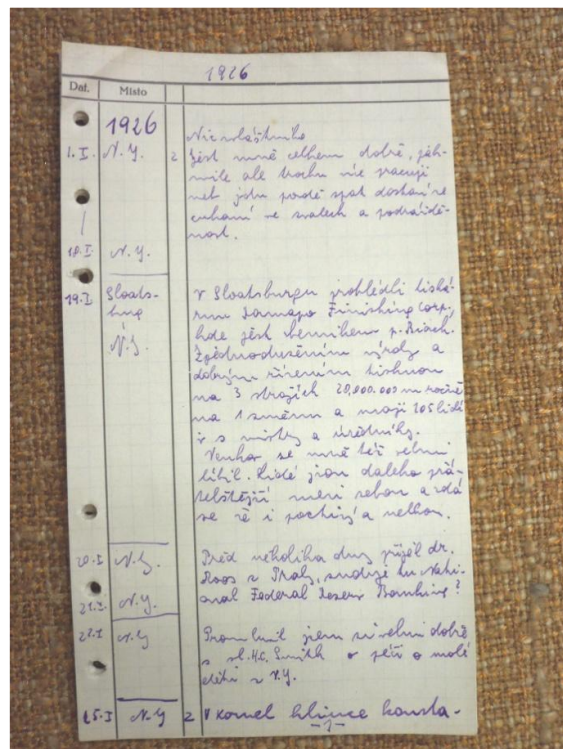 1926
Dat. Místo
1926
Nic zvláštního
1. I. N.Y. 2 jest mně celkem dobře, jak-
mile ale trochu víc pracuji
neb jdu pozdě spat dostanu
cukání ve svalech a podráždě-
nost.
18. I. N.Y.
19. I Sloats- V Sloatsburgu prohlédli tiská-
burg rnu Finishing Corp.
N.Y. kde jest p.
Zjednodušením výroby a
dobrým řízením tisknou
na 3 strojích 20,000.000 m ročně
na 1 směnu a mají 105 lidí
i s mistry a úředníky.
Venkov se mně též velmi
líbil. Lidé jsou daleko přá-
telštější mezi sebou a zdá
se že i a
20. I N.Y. Před několika dny přijel dr.
Roos z Prahy, studuje tu Nati-
21. I. N.Y. onal Federal Banking?
22. I N.Y Promluvil jsem si velmi dobře
s sl. H.C. Smith o péči o malé
děti v N.Y.
25. I N.Y 2 V
-1-